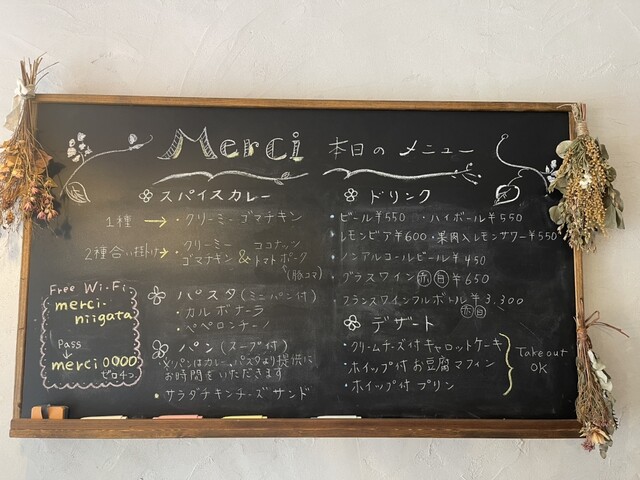 Merci 本日の メニュー
スパイスカレー
1種 → ・クリーミーゴマチキン
2種合い掛け→ ・クリーミーゴマチキン & ココナッツトマトポーク
(豚コマ)
パスタ (ミニパン付)
・カルボナーラ
・ペペロンチーノ
パン (スープ付)
※パンはカレー、パスタより提供に
お時間をいただきます
・サラダチキンチーズサンド
Free Wi-Fi
merci-
niigata
Pass
↓
merci0000
ゼロ4コ
ドリンク
・ビール¥550 ・ハイボール¥550
・レモンビア¥600・果肉入レモンサワー¥550
・ノンアルコールビール¥450
・グラスワイン 赤 白 ¥650
・フランスワインフルボトル ¥3.300
赤 白
デザート
・クリームチーズ付キャロットケーキ
・ホイップ付お豆腐マフィン
・ホイップ付プリン
Take out
OK